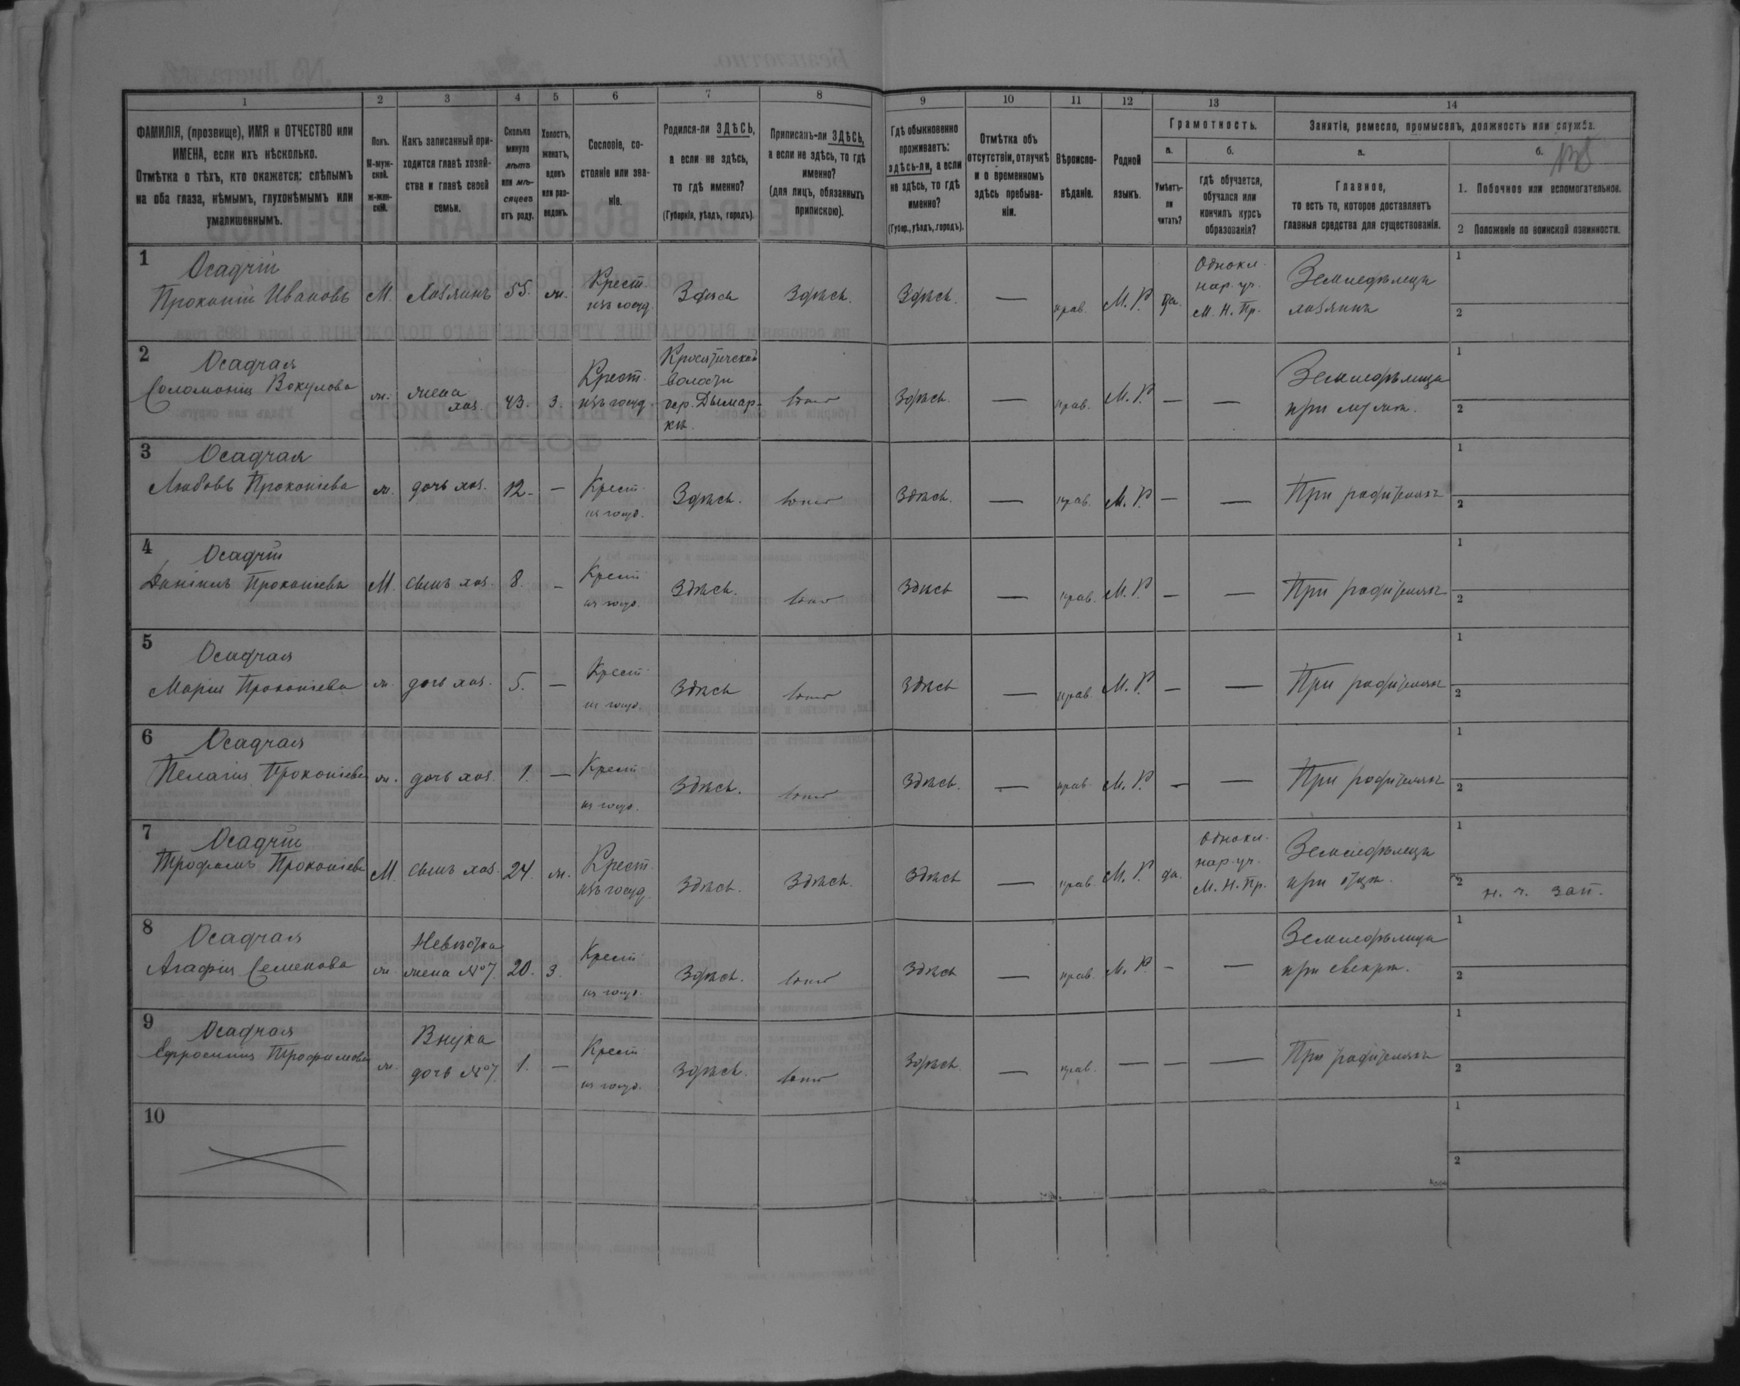 1 2 3 4 5 6 7 8 9 10 11 12 13 14
ФАМИЛІЯ, (прозвище), ИМЯ и ОТЧЕСТВО или
ИМЕНА, если ихъ нѣсколько.
Отмѣтка о тѣхъ, кто окажется: слѣпымъ
на оба глаза, нѣмымъ, глухонѣмымъ или
умалишеннымъ.
Полъ.
М-муж-
ской.
ж-жен-
скій.
Какъ записанный при-
ходится главѣ хозяй-
ства и главѣ своей
семьи.
Сколько
минуло
лѣтъ
или мѣ-
сяцевъ
отъ роду.
Холостъ,
женатъ,
вдовъ
или раз-
веденъ.
Сословіе, со-
стояніе или зва-
ніе.
Родился-ли ЗДѢСЬ,
а если не здѣсь,
то гдѣ именно?
(Губернія, уѣздъ, городъ).
Приписанъ-ли ЗДѢСЬ,
а если не здѣсь, то гдѣ
именно?
(для лицъ, обязанныхъ
припискою).
Гдѣ обыкновенно
проживаетъ:
здѣсь-ли, а если
не здѣсь, то гдѣ
именно?
(Губер., уѣздъ, городъ).
Отмѣтка объ
отсутствіи, отлучкѣ
и о временномъ
здѣсь пребыва-
ніи.
Вѣроиспо-
вѣданіе.
Родной
языкъ.
Грамотность.
а.
Умѣетъ-
ли
читать?
б.
гдѣ обучается,
обучался или
кончилъ курсъ
образованія?
Занятіе, ремесло, промыселъ, должность или служба.
а.
Главное,
то есть то, которое доставляетъ
главныя средства для существованія.
б.
1. Побочное или вспомогательное.
2 Положеніе по воинской повинности.
1
Осадчій
Прокопій Ивановъ М. хозяинъ 55. ж. Крест. изъ госуд. Здѣсь Здѣсь. Здѣсь. — прав. М. Р. да. Однокл. нар. уч. М. Н. Пр. Земледѣлецъ хозяинъ
1
2
2
Осадчая
Соломонія Вакулова ж. жена хоз. 43. з. Крест. изъ госуд. волости дер. Дымар- ки. Здѣсь. — прав. М. Р. — — Земледѣлица при мужѣ.
1
2
3
Осадчая
Любовь Прокопіева ж. дочь хоз. 12. — Крест. из госуд. Здѣсь. Здѣсь. — прав. М. Р. — — При родителяхъ
1
2
4
Осадчій
Даніилъ Прокопіевъ М. сынъ хоз. 8. — Крест из госуд. Здѣсь. Здѣсь — прав. М. Р. — — При родителяхъ
1
2
5
Осадчая
Марія Прокопіева ж. дочь хоз. 5. — Крест. из госуд. Здѣсь Здѣсь — прав. М. Р. — — При родителяхъ
1
2
6
Осадчая
Пелагія Прокопіева ж. дочь хоз. 1. — Крест из госуд. Здѣсь. Здѣсь. — прав. М. Р. — — При родителяхъ
1
2
7
Осадчій
Трофимъ Прокопіевъ М. сынъ хоз. 24. ж. Крест. изъ госуд. Здѣсь. Здѣсь. Здѣсь — прав. М. Р. да. Однокл. нар. уч. М. Н. Пр. Земледѣлецъ при отцѣ.
1
2 н. ч. зап.
8
Осадчая
Агафія Семенова ж. Невѣстка жена №7. 20. з. Крест. из госуд. Здѣсь. Здѣсь — прав. М. Р. — — Земледѣлица при свекрѣ.
1
2
9
Осадчая
Евфросинія Трофимова ж. Внука дочь №7. 1. — Крест из госуд. Здѣсь. Здѣсь — прав. — — — При родителяхъ
1
2
10
1
2